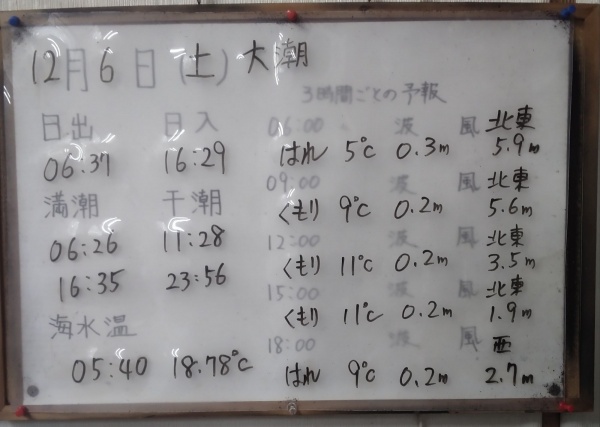 12月6日(土)大潮
3時間ごとの予報
日出 日入
06:37 16:29
満潮 干潮
06:26 11:28
16:35 23:56
海水温
05:40 18.78℃
06:00 波 風 北東
はれ 5℃ 0.3m 5.9m
09:00 波 風 北東
くもり 9℃ 0.2m 5.6m
12:00 波 風 北東
くもり 11℃ 0.2m 3.5m
15:00 波 風 北東
くもり 11℃ 0.2m 1.9m
18:00 波 風 西
はれ 9℃ 0.2m 2.7m